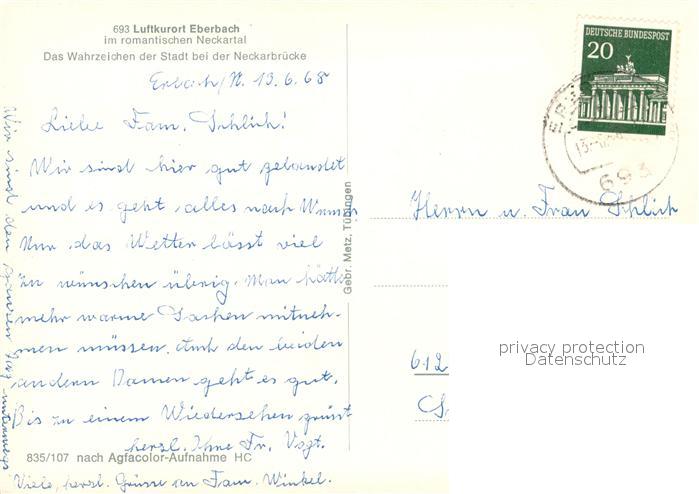 693 Luftkurort Eberbach
im romantischen Neckartal
Das Wahrzeichen der Stadt bei der Neckarbrücke
Erbach/N. 13.6.68
Liebe Fam. Schlich!
Wir sind hier gut gelandet
und es geht alles nach Wunsch
Nur das Wetter lässt viel
zu wünschen übrig. Man hätte
mehr warme Sachen mitneh-
men müssen. Auch den beiden
andern Damen geht es gut.
Bis zu einem Wiedersehen grüsst
herzl. Ihre Fr. Vogt.
Viele herzl. Grüsse an Fam. Winkel.
Wir sind den ganzen Tag unterwegs
835/107 nach Agfacolor-Aufnahme HC
Gebr. Metz, Tübingen
DEUTSCHE BUNDESPOST
20
693
Herrn u. Frau Schlich
612
privacy protection
Datenschutz